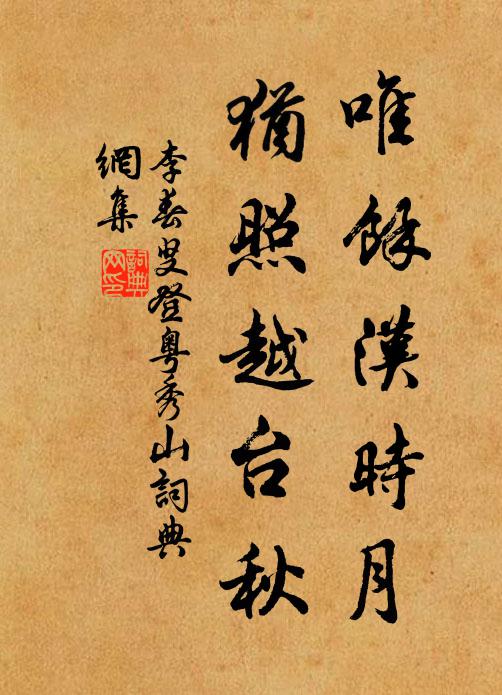 唯餘漢時月
猶照越台秋
李春叟登粵秀山詞典
網集
詞典
网印